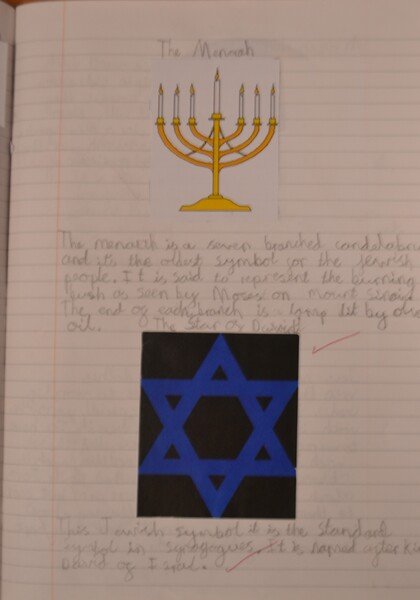 The Menorah
The menorah is a seven branched candelabru
and it's the oldest symbol for the Jewish
people. It is said to represent the burning
bush as seen by Moses on mount
The end of each branch is a lamp lit by
oil. The Star of David
This Jewish symbol it is the standard
symbol in synagogues. It is named after ki
David of